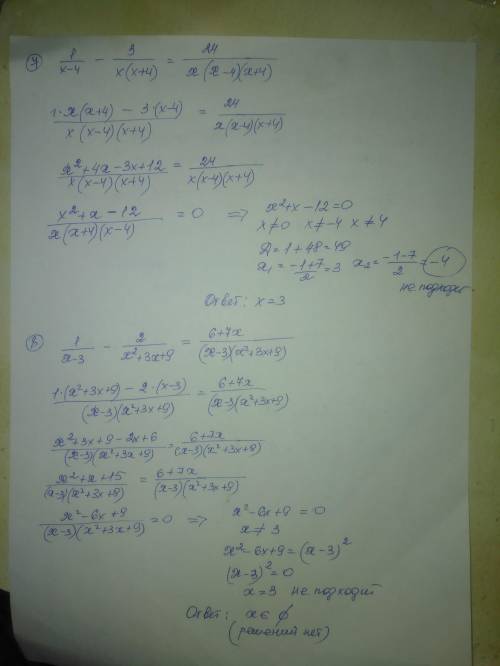 у) 1/(x-4) - 3/(x(x+4)) = 24/(x(x-4)(x+4))
(1·x(x+4) - 3·(x-4))/(x(x-4)(x+4)) = 24/(x(x-4)(x+4))
(x²+4x-3x+12)/(x(x-4)(x+4)) = 24/(x(x-4)(x+4))
(x²+x-12)/(x(x+4)(x-4)) = 0 ⇒ x²+x-12=0
x≠0 x≠-4 x≠4
Д=1+48=49
x₁=(-1+7)/2=3 x₂=(-1-7)/2=-4
не подходит
Ответ: x=3
в) 1/(x-3) - 2/(x²+3x+9) = (6+7x)/((x-3)(x²+3x+9))
(1·(x²+3x+9) - 2·(x-3))/((x-3)(x²+3x+9)) = (6+7x)/((x-3)(x²+3x+9))
(x²+3x+9-2x+6)/((x-3)(x²+3x+9)) = (6+7x)/((x-3)(x²+3x+9))
(x²+x+15)/((x-3)(x²+3x+9)) = (6+7x)/((x-3)(x²+3x+9))
(x²-6x+9)/((x-3)(x²+3x+9)) = 0 ⇒ x²-6x+9=0
x≠3
x²-6x+9=(x-3)²
(x-3)²=0
x=3 не подходит
Ответ: x∈∅
(решений нет)